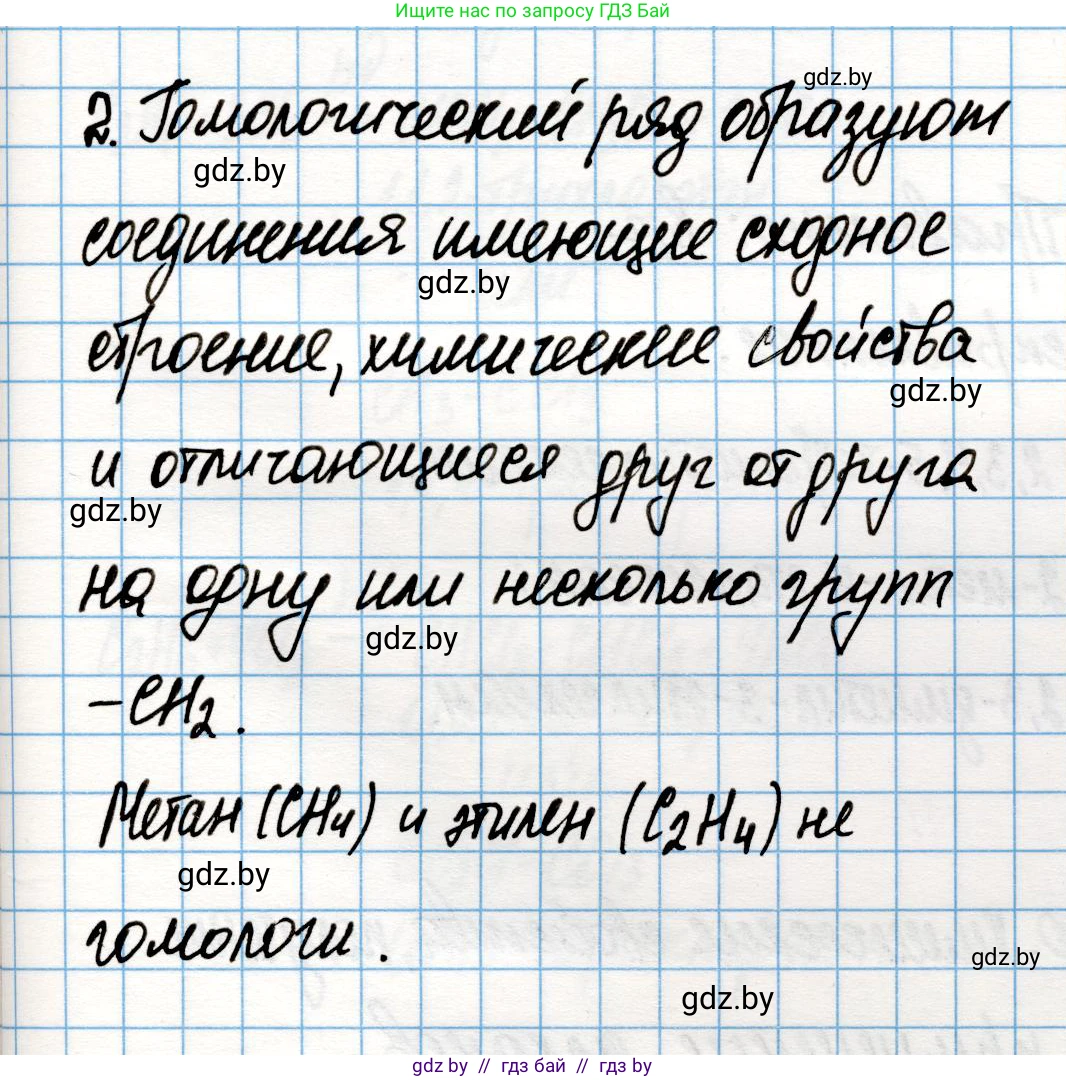 Ищите нас по запросу ГДЗ Бай
gdz.by
2. Гомологический ряд образуют
gdz.by
соединения имеющие сходное
gdz.by
строение, химические свойства
gdz.by
и отличающиеся друг от друга
gdz.by
на одну или несколько групп
gdz.by
–CH₂.
Метан (CH₄) и этилен (C₂H₄) не
gdz.by
гомологи.
gdz.by
gdz.by
gdz.by // гдз бай // гдз by